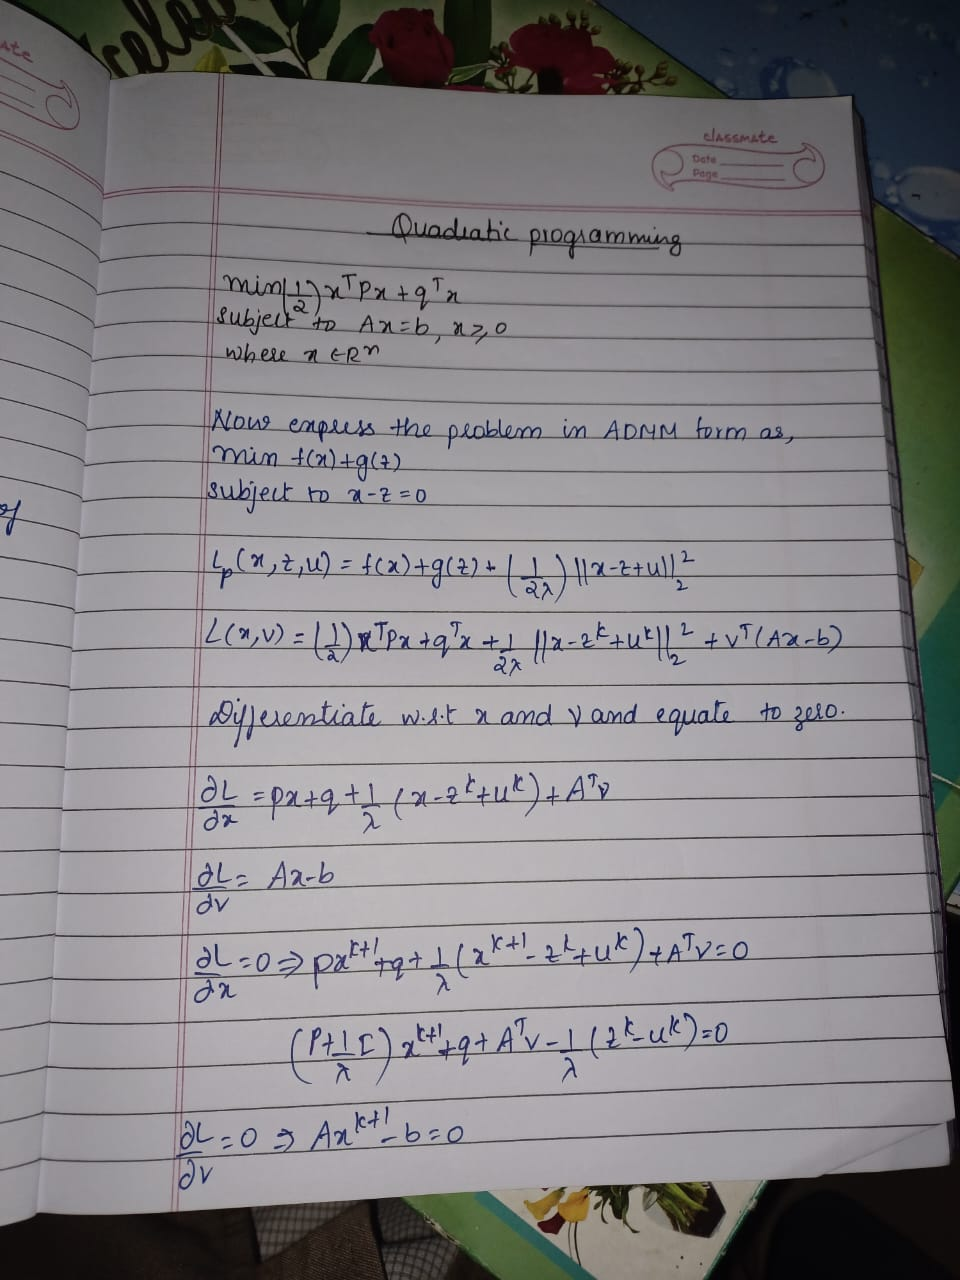 classmate
Date
Page
Quadratic programming
min(1/2)xᵀPx+qᵀx
subject to Ax=b, x≥0
where x ∈ Rⁿ
Now express the problem in ADMM form as,
min f(x)+g(z)
subject to x-z=0
Lp(x,z,u) = f(x)+g(z)+(1/2λ)||x-z+u||₂²
L(x,v) = (1/2)xᵀPx+qᵀx+1/2λ ||x-zᵏ+uᵏ||₂² + vᵀ(Ax-b)
Differentiate w.r.t x and v and equate to zero.
∂L/∂x = px+q+1/λ (x-zᵏ+uᵏ)+Aᵀv
∂L/∂v = Ax-b
∂L/∂x =0 ⇒ pxᵏ⁺¹+q+1/λ(xᵏ⁺¹-zᵏ+uᵏ)+Aᵀv=0
(P+1/λ I) xᵏ⁺¹+q+Aᵀv-1/λ (zᵏ-uᵏ)=0
∂L/∂v =0 ⇒ Axᵏ⁺¹-b=0